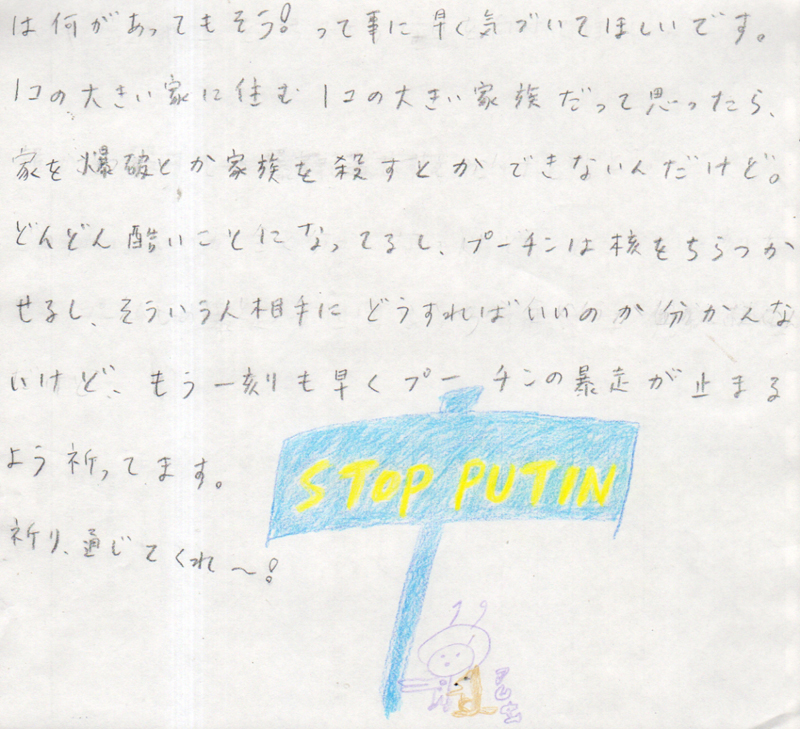 は何があってもそう!って事に早く気づいてほしいです。
1コの大きい家に住む1コの大きい家族だって思ったら、
家を爆破とか家族を殺すとかできないんだけど。
どんどん酷いことになってるし、プーチンは核をちらつか
せるし、そういう人相手にどうすればいいのか分かんな
いけど、もう一刻も早くプーチンの暴走が止まる
よう祈ってます。
祈り、通じてくれ〜!
STOP PUTIN